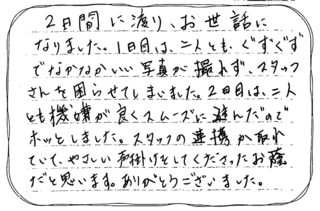 2日間に渡り、お世話に
なりました。1日目は、二人とも、ぐずぐず
でなかなかいい写真が撮れず、スタッフ
さんを困らせてしまいました。2日目は、二人
とも機嫌が良くスムーズに進んだので
ホッとしました。スタッフの連携が取れ
ていて、やさしい声掛けをしてくださったお蔭
だと思います。ありがとうございました。